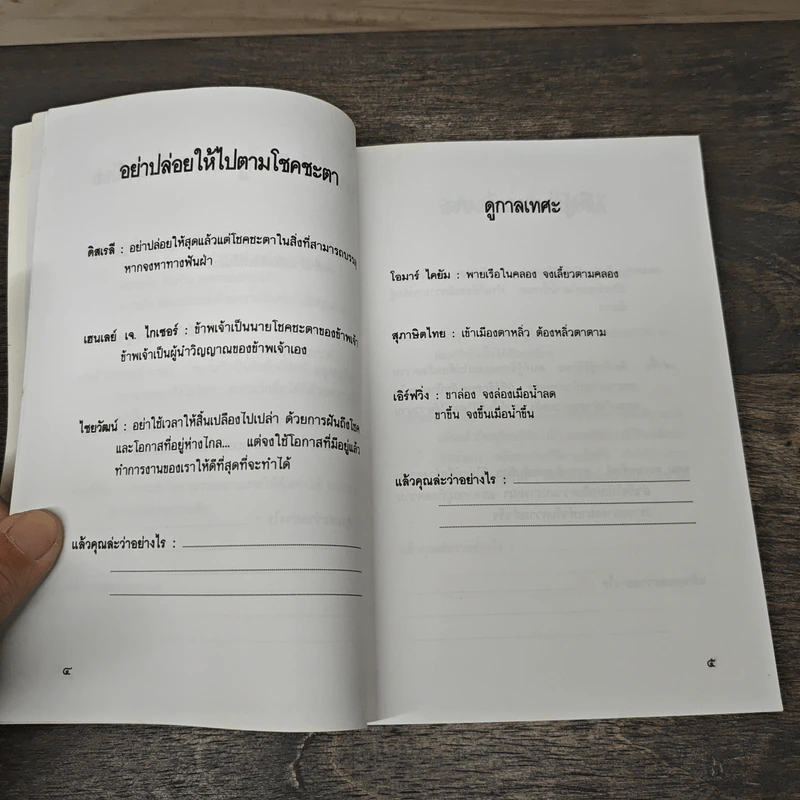 อย่าปล่อยให้ไปตามโชคชะตา
ดิสเรลี : อย่าปล่อยให้สุดแล้วแต่โชคชะตาในสิ่งที่สามารถบรรลุ
หากจงหาทางฟันฝ่า
เฮนเลย์ เจ. ไกเซอร์ : ข้าพเจ้าเป็นนายโชคชะตาของข้าพเจ้า
ข้าพเจ้าเป็นผู้นำวิญญาณของข้าพเจ้าเอง
ไชยวัฒน์ : อย่าใช้เวลาให้สิ้นเปลืองไปเปล่า ด้วยการฝันถึงโชค
และโอกาสที่อยู่ห่างไกล... แต่จงใช้โอกาสที่มีอยู่แล้ว
ทำการงานของเราให้ดีที่สุดที่จะทำได้
แล้วคุณล่ะว่าอย่างไร :
๔
ดูกาลเทศะ
โอมาร์ ไคยัม : พายเรือในคลอง จงเลี้ยวตามคลอง
สุภาษิตไทย : เข้าเมืองตาหลิ่ว ต้องหลิ่วตาตาม
เอิร์ฟวิ่ง : ขาล่อง จงล่องเมื่อน้ำลด
ขาขึ้น จงขึ้นเมื่อน้ำขึ้น
แล้วคุณล่ะว่าอย่างไร :
๕